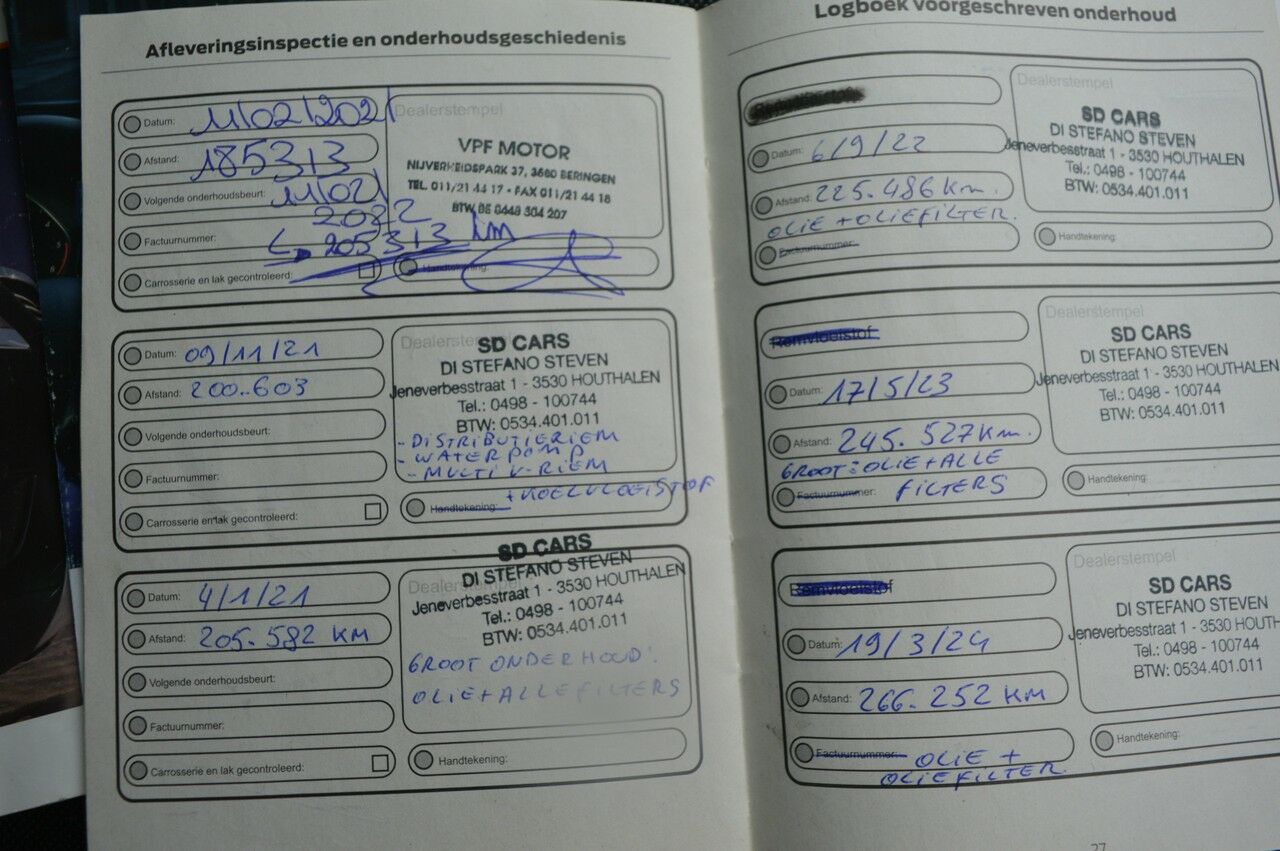 Afleveringsinspectie en onderhoudsgeschiedenis
Datum: 11/02/2021
Afstand: 185313
Volgende onderhoudsbeurt: 11/02/
2022
Factuurnummer: 205313 km
Carrosserie en lak gecontroleerd:
Dealerstempel
VPF MOTOR
NIJVERHEIDSPARK 37, 3580 BERINGEN
TEL. 011/21 44 17 - FAX 011/21 44 18
BTW BE 0448 304 207
Handtekening:
Datum: 09/11/21
Afstand: 200.603
Volgende onderhoudsbeurt:
Factuurnummer:
Carrosserie en lak gecontroleerd:
Dealerstempel
SD CARS
DI STEFANO STEVEN
Jeneverbesstraat 1 - 3530 HOUTHALEN
Tel.: 0498 - 100744
BTW: 0534.401.011
- DISTRIBUTIERIEM
- WATERPOMP
- MULTI V-RIEM
+ KOELVLOEISTOF
Handtekening:
Datum: 4/1/21
Afstand: 205.582 KM
Volgende onderhoudsbeurt:
Factuurnummer:
Carrosserie en lak gecontroleerd:
Dealerstempel
SD CARS
DI STEFANO STEVEN
Jeneverbesstraat 1 - 3530 HOUTHALEN
Tel.: 0498 - 100744
BTW: 0534.401.011
GROOT ONDERHOUD:
OLIE + ALLE FILTERS
Handtekening:
Logboek voorgeschreven onderhoud
Datum: 6/9/22
Afstand: 225.486 Km.
OLIE + OLIEFILTER.
Factuurnummer:
Dealerstempel
SD CARS
DI STEFANO STEVEN
Jeneverbesstraat 1 - 3530 HOUTHALEN
Tel.: 0498 - 100744
BTW: 0534.401.011
Handtekening:
Remvloeistof
Datum: 17/5/23
Afstand: 245.527 Km.
GROOT: OLIE + ALLE
Factuurnummer: FILTERS
Dealerstempel
SD CARS
DI STEFANO STEVEN
Jeneverbesstraat 1 - 3530 HOUTHALEN
Tel.: 0498 - 100744
BTW: 0534.401.011
Handtekening:
Remvloeistof
Datum: 19/3/24
Afstand: 266.252 KM
Factuurnummer: OLIE +
OLIEFILTER.
Dealerstempel
SD CARS
DI STEFANO STEVEN
Jeneverbesstraat 1 - 3530 HOUTHA
Tel.: 0498 - 100744
BTW: 0534.401.011
Handtekening:
27